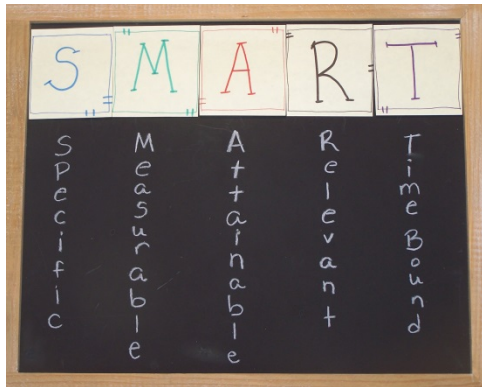 S M A R T
Specific
Measurable
Attainable
Relevant
Time Bound